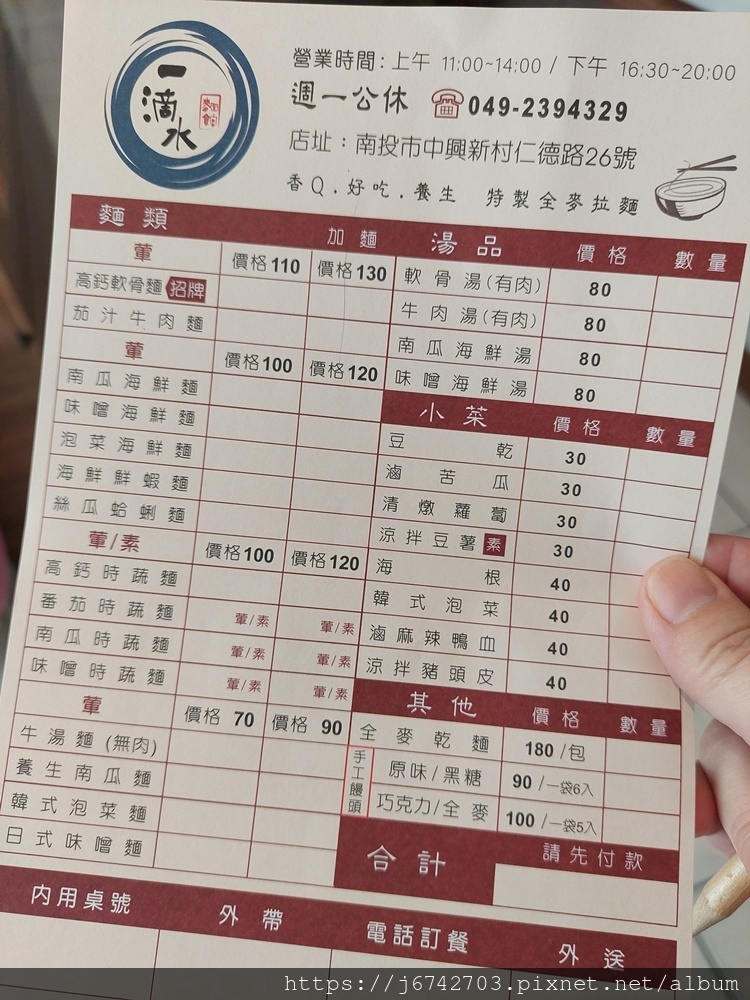 一滴水
麵館
營業時間:上午 11:00~14:00 / 下午 16:30~20:00
週一公休 049-2394329
店址:南投市中興新村仁德路26號
香Q.好吃.養生 特製全麥拉麵
麵類 加麵
葷 價格110 價格130
高鈣軟骨麵 招牌
茄汁牛肉麵
葷 價格100 價格120
南瓜海鮮麵
味噌海鮮麵
泡菜海鮮麵
海鮮鮮蝦麵
絲瓜蛤蜊麵
葷/素 價格100 價格120
高鈣時蔬麵
番茄時蔬麵 葷/素 葷/素
南瓜時蔬麵 葷/素 葷/素
味噌時蔬麵 葷/素 葷/素
葷 價格 70 價格 90
牛湯麵(無肉)
養生南瓜麵
韓式泡菜麵
日式味噌麵
湯品 價格 數量
軟骨湯(有肉) 80
牛肉湯(有肉) 80
南瓜海鮮湯 80
味噌海鮮湯 80
小菜 價格 數量
豆乾 30
滷苦瓜 30
清燉蘿蔔 30
涼拌豆薯 素 30
海根 40
韓式泡菜 40
滷麻辣鴨血 40
涼拌豬頭皮 40
其他 價格 數量
全麥乾麵 180 /包
手工饅頭
原味/黑糖 90 /一袋6入
巧克力/全麥 100 /一袋5入
合計 請先付款
內用桌號 外帶 電話訂餐 外送
https://j6742703.pixnet.net/album